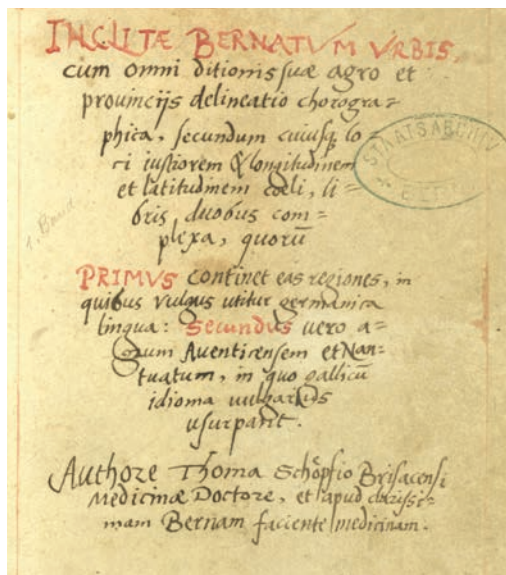 INCLITÆ BERNATVM VRBIS,
cum omni ditionis suæ agro et
prouincijs delineatio chorogra=
phica, secundum cuiusq lo=
ci iustiorem & longitudinem
et latitudinem cœli, li=
bris duobus com=
plexa, quorū
PRIMVS continet eas regiones, in
quibus vulgus utitur germanica
lingua: Secundus uero a=
grum Auenticensem et Nan=
tuatum, in quo gallicū
idioma uulgarius
usurpant.
Authore Thoma Schöpfio Brisacensi
Medicinæ Doctore, et apud clarissi=
mam Bernam faciente medicinam.
STAATSARCHIV
BERN
1. Band